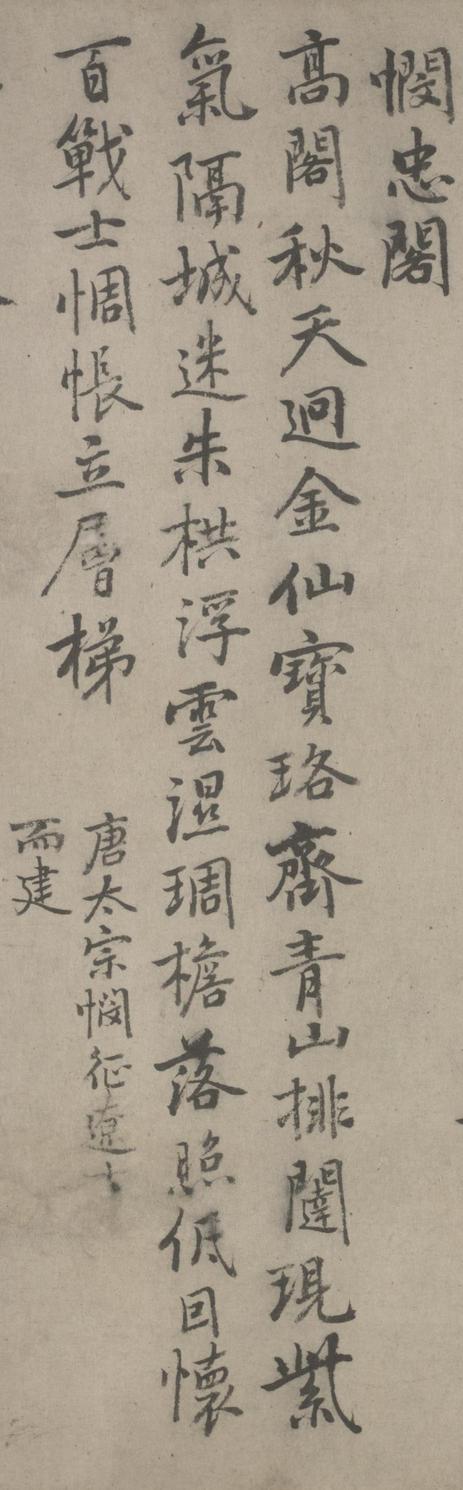 憫忠閣
髙閣秋天迥金仙寳珞齊青山排闥現紫
氣隔城迷朱栱浮雲濕琱檐落照低回懷
百戰士惆悵立層梯
唐太宗憫征遼士
而建